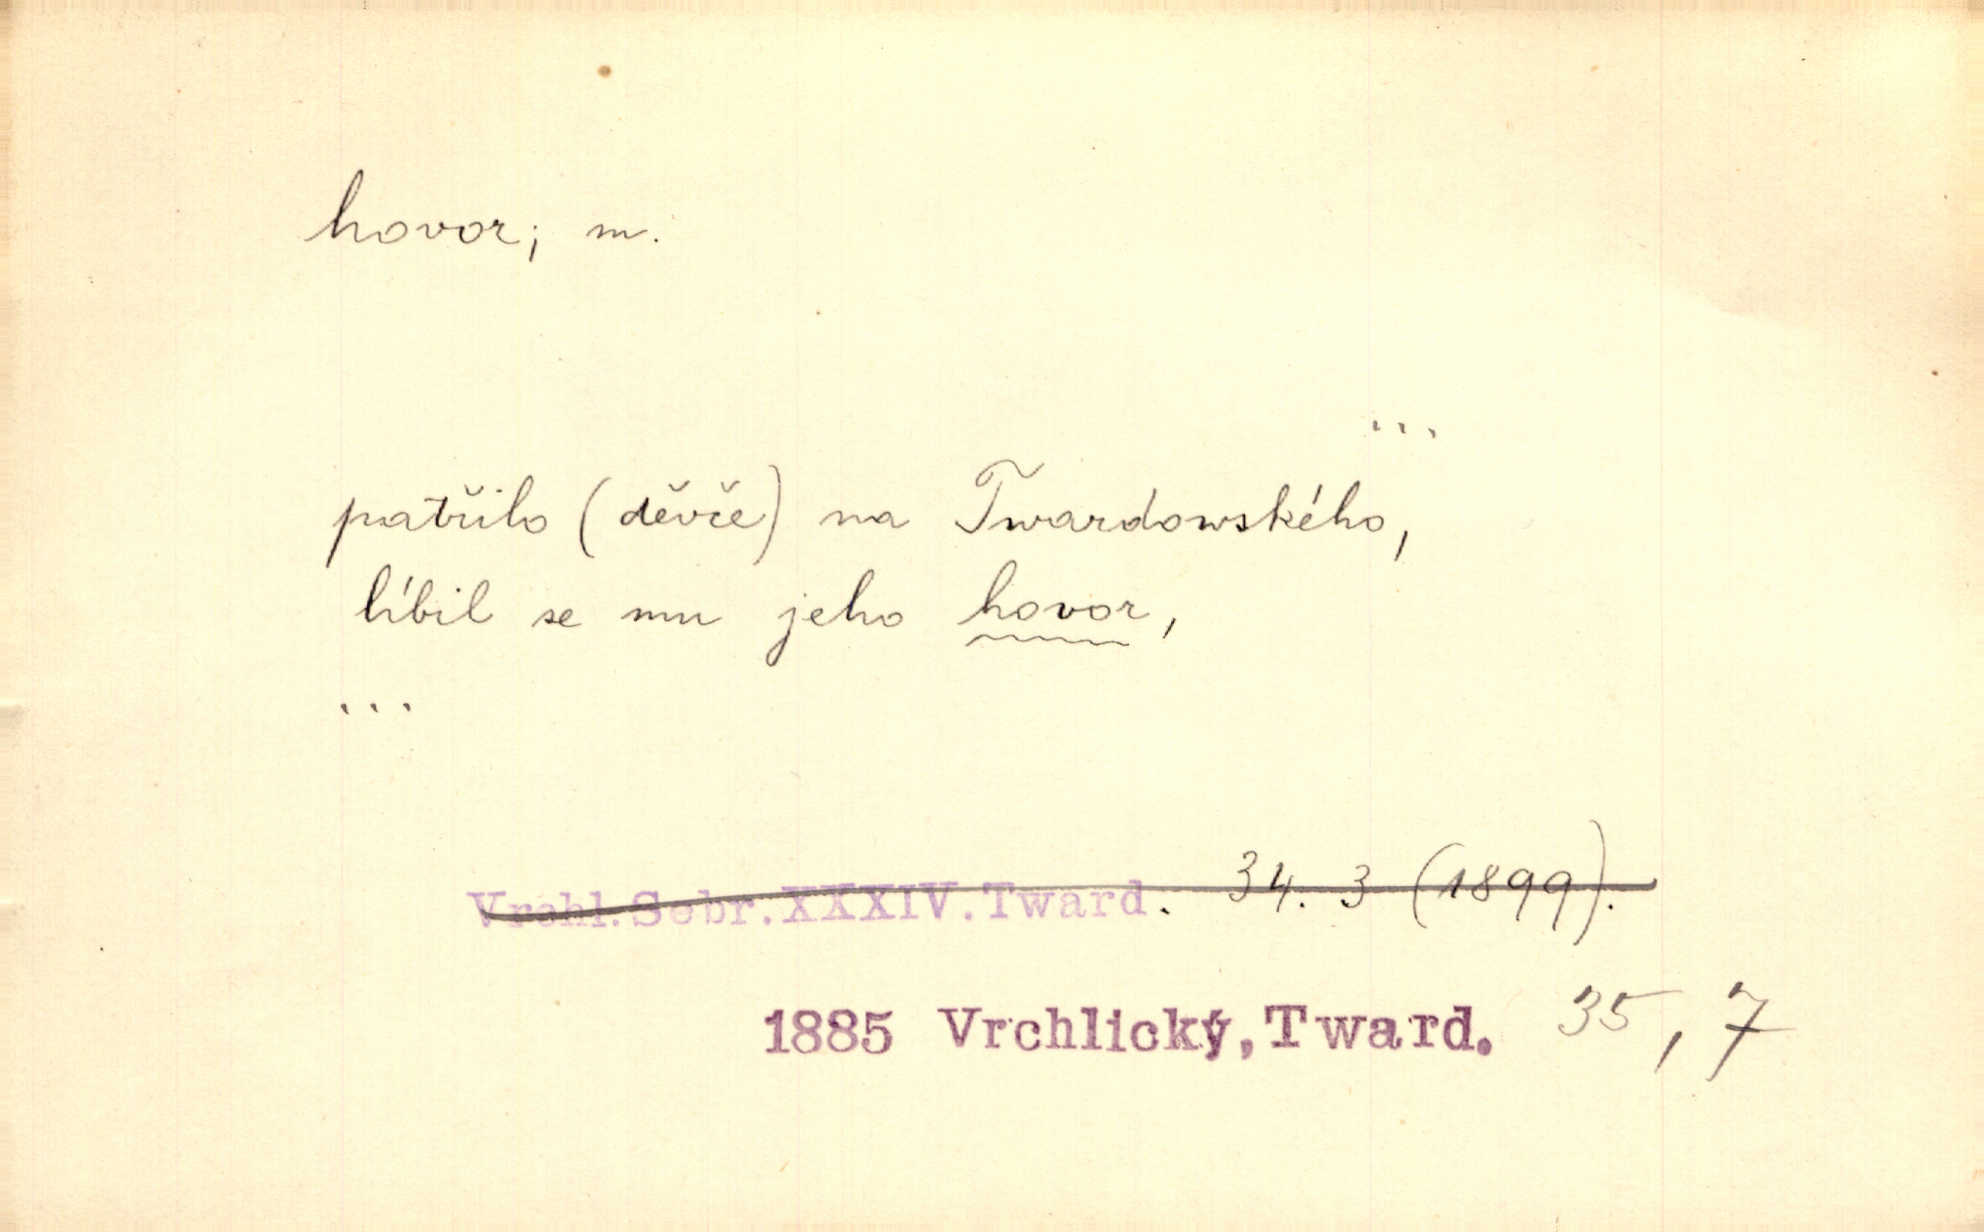 hovor; m.
...
patřilo (děvče) na Twardowského,
líbil se mu jeho hovor,
...
Vrchl. Sebr. XXXIV. Tward. 34. 3 (1899).
1885 Vrchlický, Tward. 35, 7